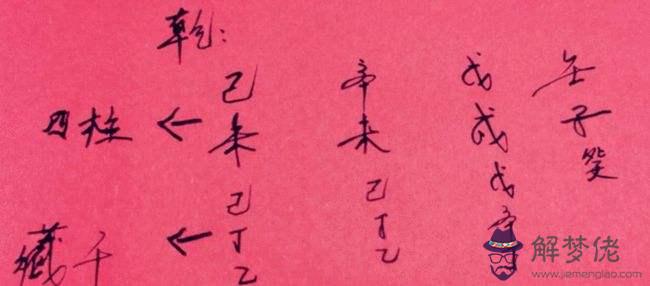 乾:
四柱 ← 己未
藏干 ← 己丁乙
辛未己丁乙
戊戌戊辛
壬子癸
解梦佬
www.jiemenglao.com